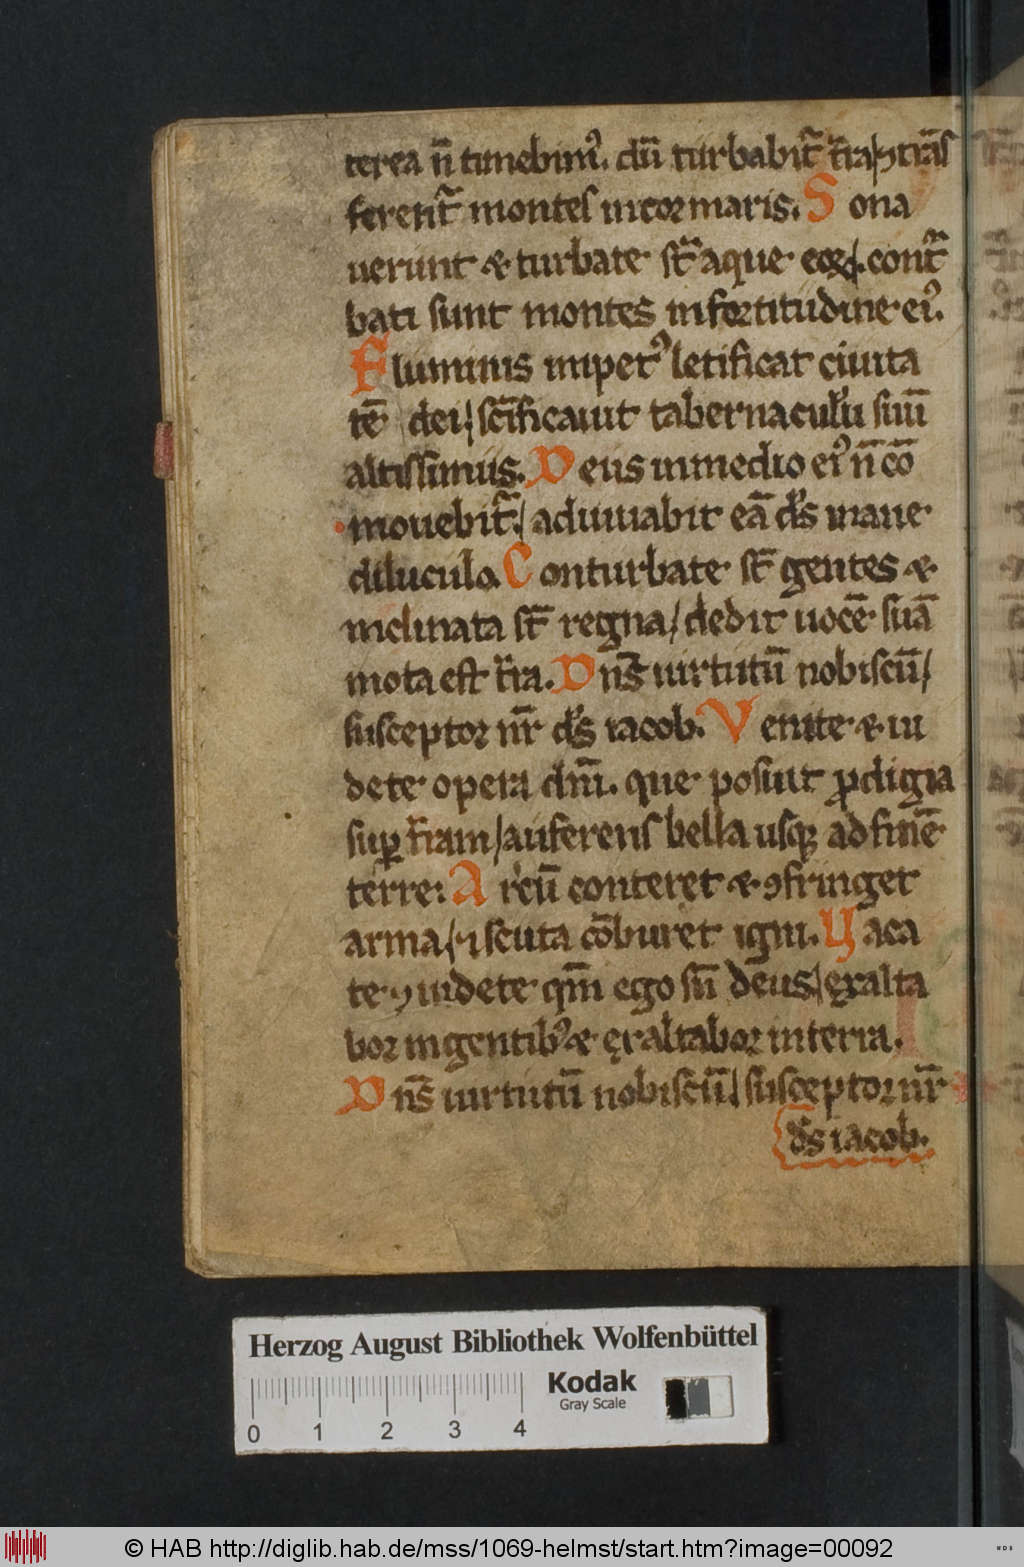 terea n̄ timebim᷒. dū turbabit᷑ t͛ra ⁊ trāſ
ferent᷑ montes in cor maris. Sona
uerunt & turbate st̄ aque eoꝝ. cont᷑
bati sunt montes in fortitudine ei᷒.
Fluminis impet᷒ letificat ciuita
tē dei / sc̄ificauit tabernaculū suū
altissimus. Deus in medio ei᷒ n̄ cō
mouebit᷑ / adiuuabit eā d̄s mane
diluculo. Conturbate st̄ gentes &
inclinata st̄ regna / dedit uocē suā
mota est t͛ra. Dn̄s uirtutū nobiscū /
susceptor nr̄ d̄s iacob. Venite & ui
dete opera dn̄i. que posuit ꝓdigia
suꝑ t͛ram / auferens bella usqꝫ ad finē
terre. Arcū conteret & ꝯfringet
arma / ⁊ scuta cōburet igni. Uaca
te ⁊ uidete qm̄ ego sū deus / exalta
bor in gentib᷒ & exaltabor in terra.
Dn̄s uirtutū nobiscū / susceptor nr̄
d̄s iacob.
Herzog August Bibliothek Wolfenbüttel
Kodak
Gray Scale
0 1 2 3 4
© HAB http://diglib.hab.de/mss/1069-helmst/start.htm?image=00092